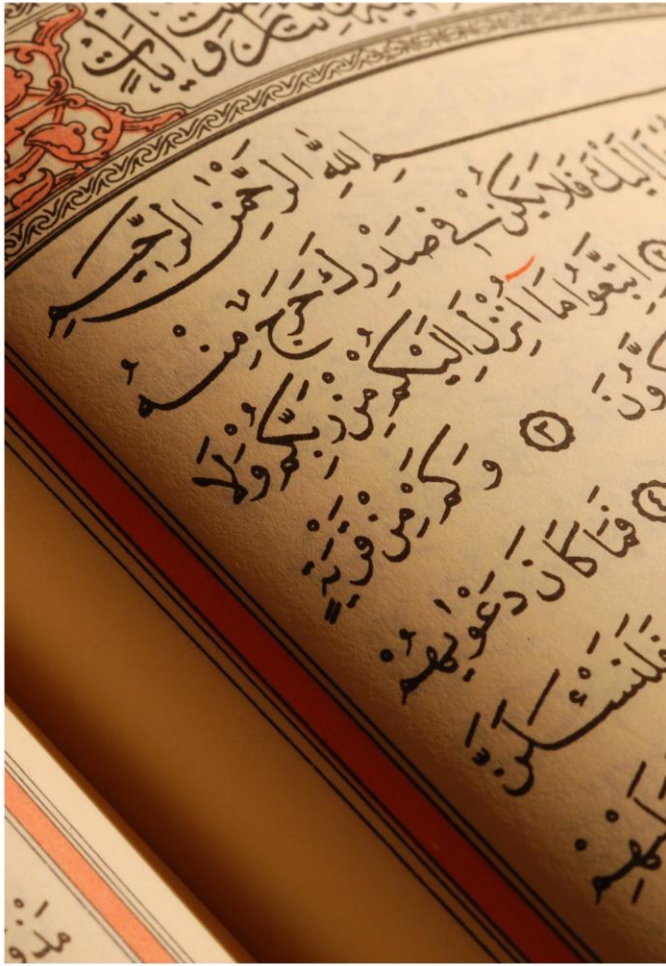 بِسْمِ اللّٰهِ الرَّحْمٰنِ الرَّحِيمِ
اِلَيْكَ فَلَا يَكُنْ فِى صَدْرِكَ حَرَجٌ مِنْهُ
اِتَّبِعُوا مَٓا اُنْزِلَ اِلَيْكُمْ مِنْ رَبِّكُمْ وَلَا
٣ وَكَمْ مِنْ قَرْيَةٍ
٤ فَمَا كَانَ دَعْوٰيهُمْ
فَلَنَسْـَٔلَنَّ